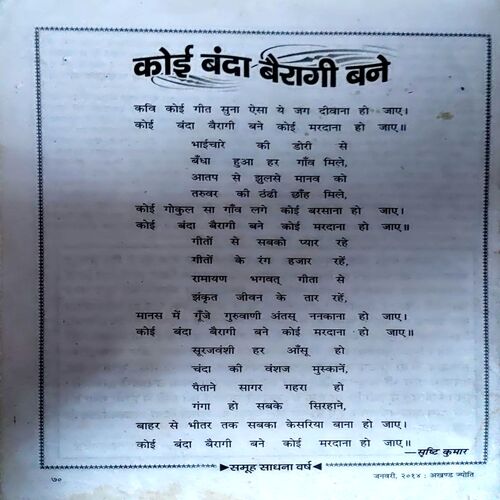 कोई बंदा बैरागी बने
कवि कोई गीत सुना ऐसा ये जग दीवाना हो जाए।
कोई बंदा बैरागी बने कोई मरदाना हो जाए॥
भाईचारे की डोरी से
बँधा हुआ हर गाँव मिले,
आतप से झुलसे मानव को
तरुवर की ठंढी छाँह मिले,
कोई गोकुल सा गाँव लगे कोई बरसाना हो जाए।
कोई बंदा बैरागी बने कोई मरदाना हो जाए॥
गीतों से सबको प्यार रहे
गीतों के रंग हजार रहें,
रामायण भगवत् गीता से
झंकृत जीवन के तार रहें,
मानस में गूँजे गुरुवाणी अंतस् ननकाना हो जाए।
कोई बंदा बैरागी बने कोई मरदाना हो जाए॥
सूरजवंशी हर आँसू हो
चंदा की वंशज मुस्कानें,
पैताने सागर गहरा हो
गंगा हो सबके सिरहाने,
बाहर से भीतर तक सबका केसरिया बाना हो जाए।
कोई बंदा बैरागी बने कोई मरदाना हो जाए॥
—सृष्टि कुमार
►समूह साधना वर्ष◄
७०
जनवरी, २०१४ : अखण्ड ज्योति